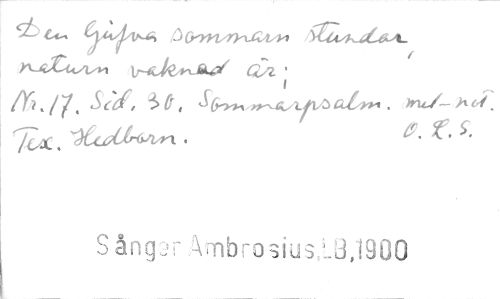 Den ljufva sommarn stundar,
naturn vaknad är;
Nr. 17. Sid. 30. Sommarpsalm. mel-not.
Tex. Hedborn. O. L. S.
Sånger Ambrosius,LB,1900